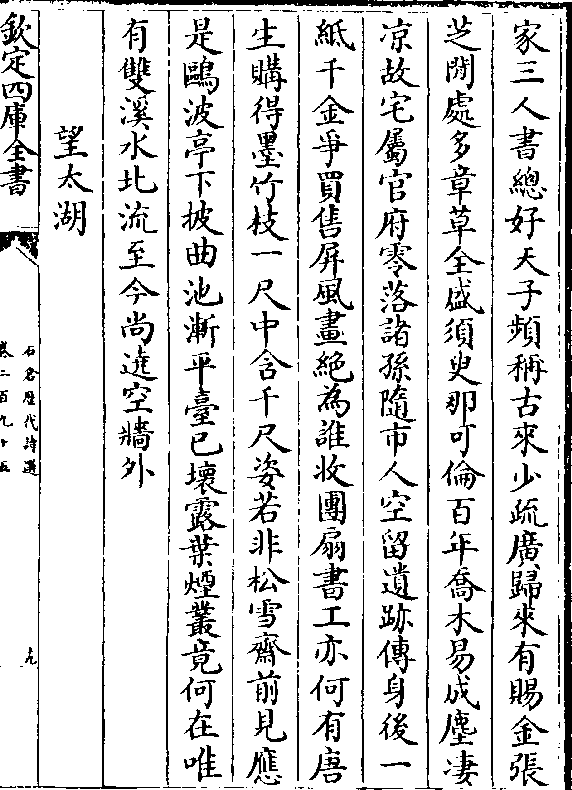 家三人書總好天子頻稱古來少疏廣歸來有賜金張
芝閒處多章草全盛須臾那可倫百年喬木易成塵凄
凉故宅屬官府零落諸孫隨市人空留遺跡傳身後一
紙千金爭買售屏風畫絶為誰收團扇書工亦何有唐
生購得墨竹枝一尺中含千尺姿若非松雪齋前見應
是鷗波亭下披曲池漸平臺已壞露葉煙叢竟何在唯
有雙溪水北流至今尚遶空牆外
望太湖
欽定四庫全書
石倉歷代詩選
卷二百九十五
九